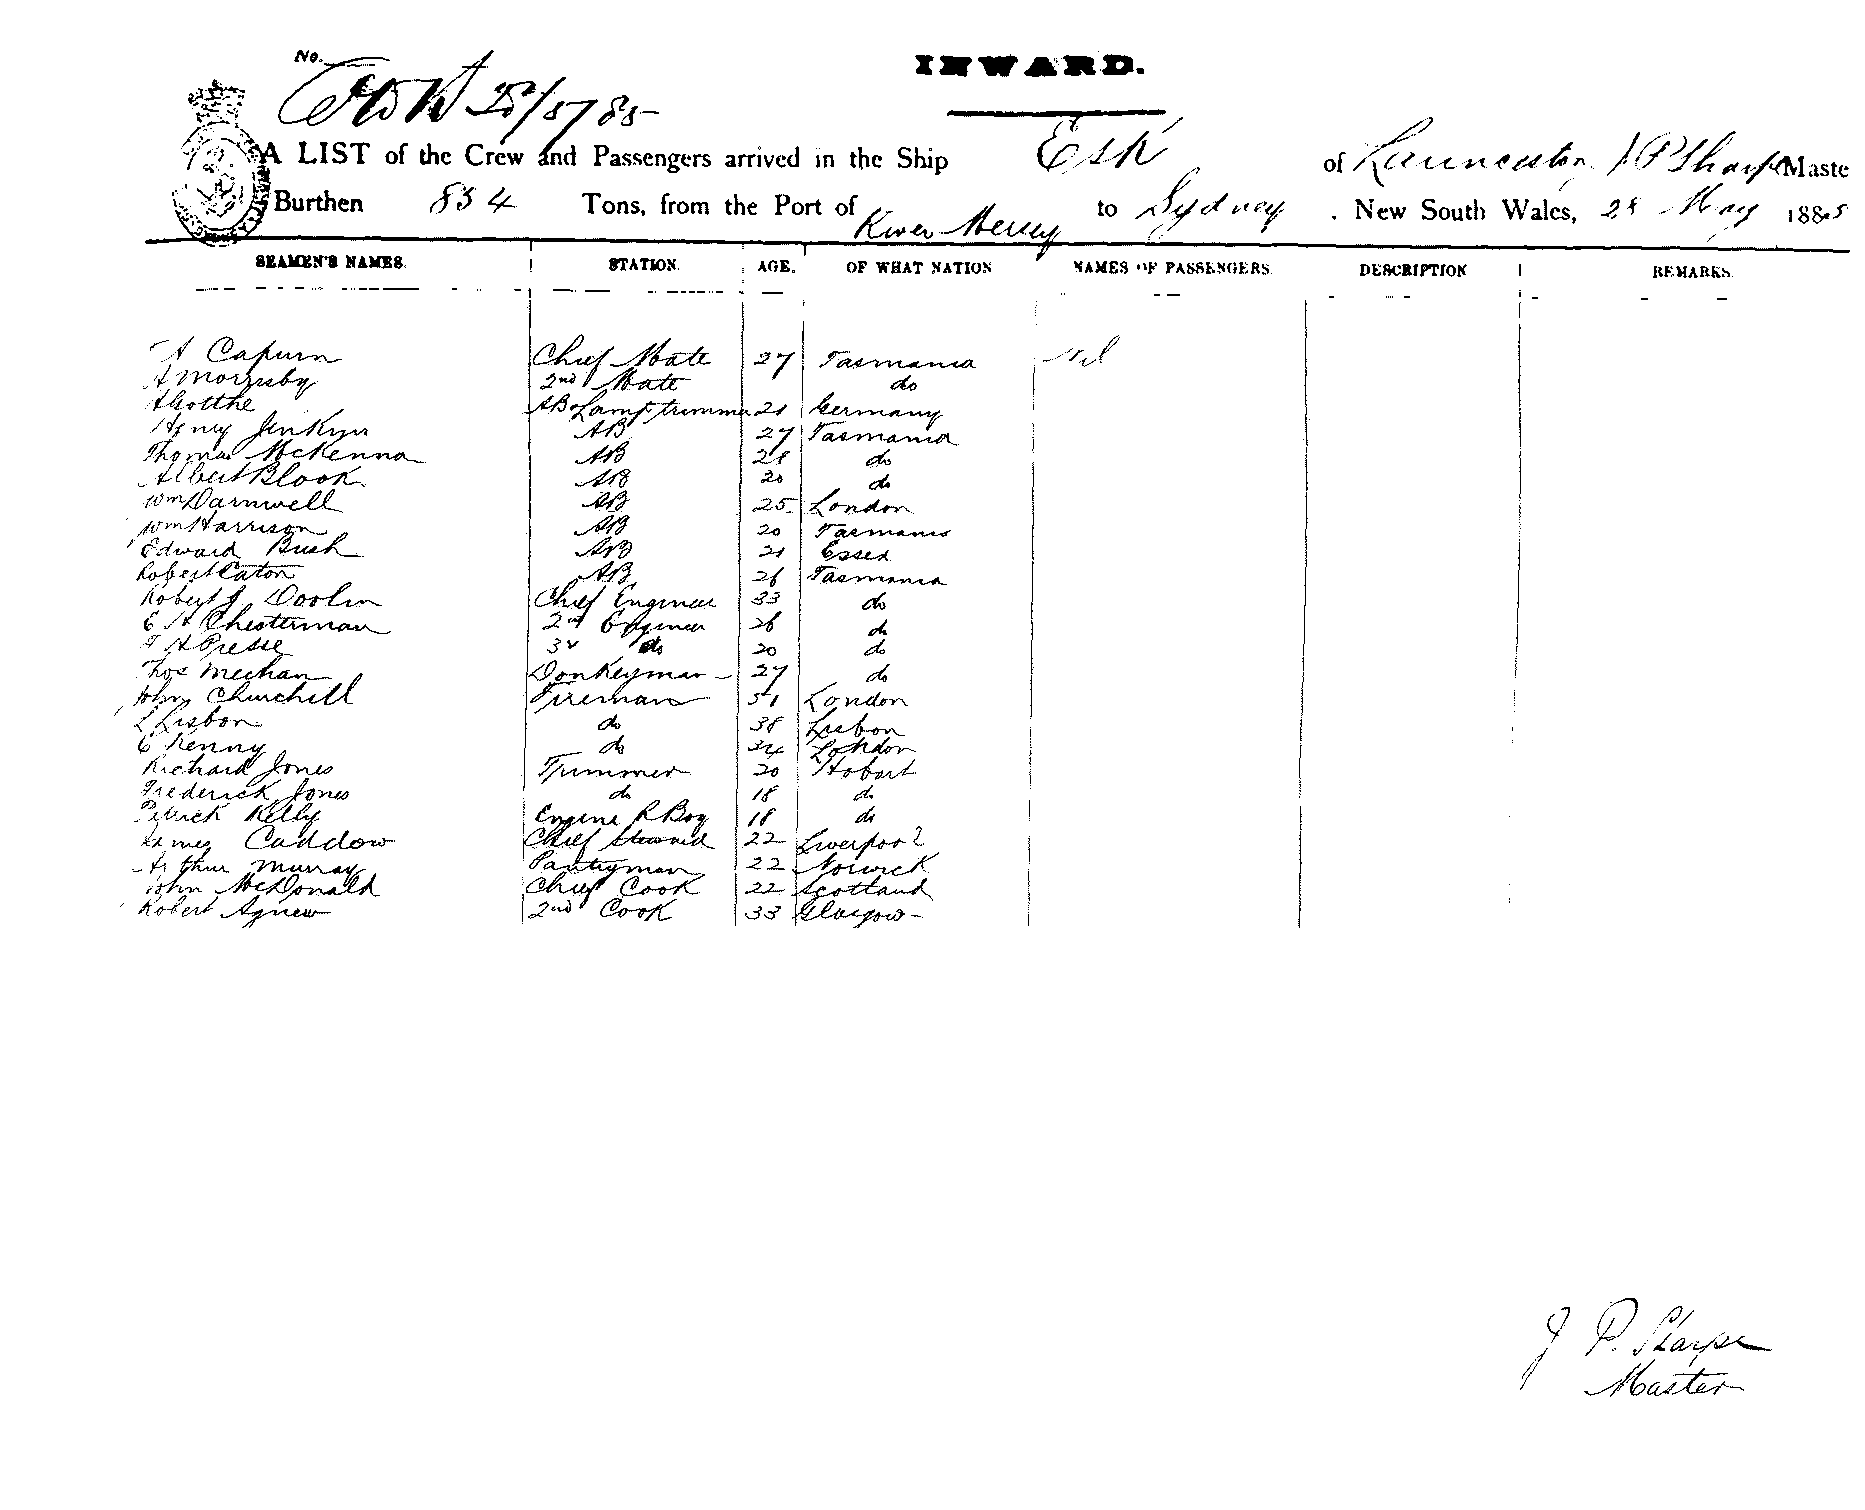 No.
28/5/85
INWARD.
A LIST of the Crew and Passengers arrived in the Ship Esk of Launceston J P Sharpe Maste
Burthen 854 Tons, from the Port of River Mersey to Sydney . New South Wales, 28 May 1885
SEAMEN'S NAMES. STATION. AGE. OF WHAT NATION NAMES OF PASSENGERS. DESCRIPTION REMARKS.
A Capurn Chief Mate 27 Tasmania Nil
A Morrisby 2nd Mate do
A Gotthe AB & Lamp trimmer 21 Germany
Henry Jenkyn AB 27 Tasmania
Thomas McKenna AB 28 do
Albert Blook AB 20 do
Wm Darnwell AB 25 London
Wm Harrison AB 20 Tasmania
Edward Bush AB 21 Essex
Robert Eaton AB 26 Tasmania
Robert J Doolin Chief Engineer 33 do
E H Chesterman 2nd Engineer 26 do
T H Presse 3d do 20 do
Thos Meehan Donkeyman 27 do
John Churchill Fireman 51 London
L Lisbon do 38 Lisbon
C Kenny do 34 London
Richard Jones Trimmer 20 Hobart
Frederick Jones do 18 do
Patrick Kelly Engine R Boy 18 do
James Caddow Chief Steward 22 Liverpool
Arthur Murray Pantryman 22 Norwick
John McDonald Chief Cook 22 Scotland
Robert Agnew 2nd Cook 33 Glasgow
J P. Sharpe
Master